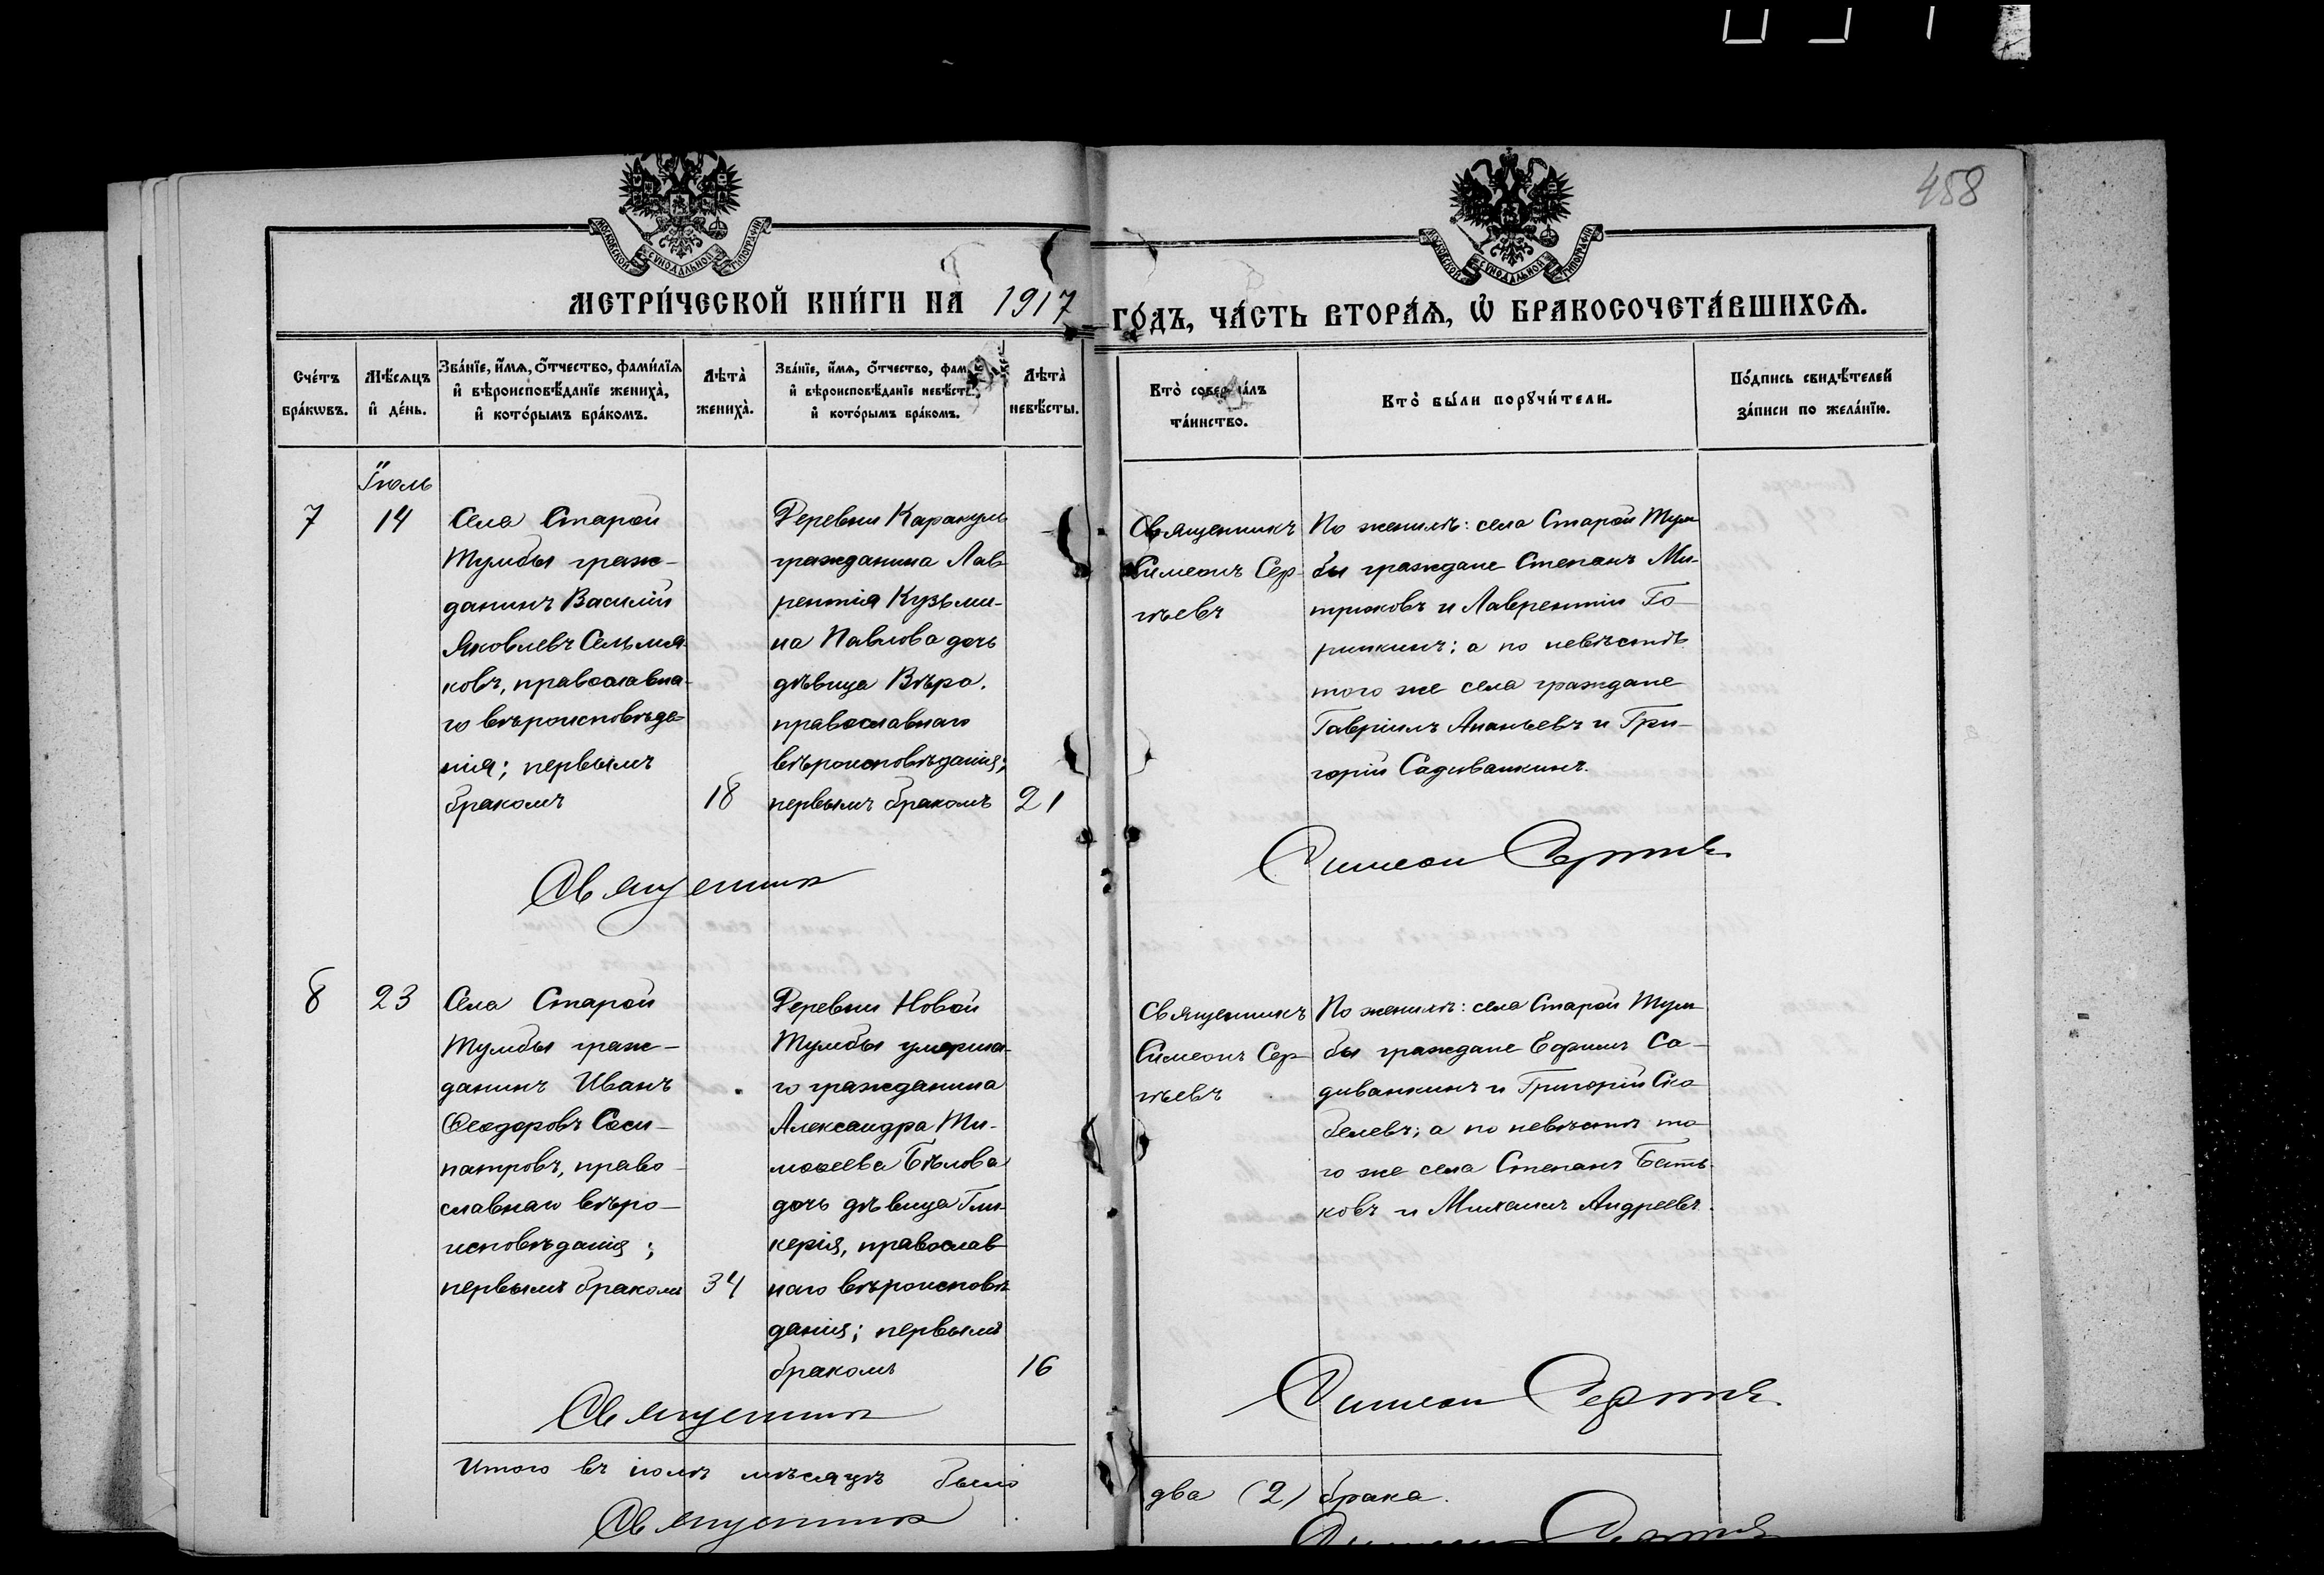 458
МОСКОВСКОЙ СѴНОДАЛЬНОЙ ТИПОГРАФІИ
МОСКОВСКОЙ СѴНОДАЛЬНОЙ ТИПОГРАФІИ
МЕТРИ́ЧЕСКОЙ КНИ́ГИ НА 1917 ГО́ДЪ, ЧА́СТЬ ВТОРА́Ѧ, Ѡ БРАКОСОЧЕТА́ВШИХСѦ.
Сче́тъ
бра́кѡвъ.
Мѣ́сѧцъ
и҆ де́нь.
Зва́нїе, и҆́мѧ, ѻ҆́тчество, фами́лїѧ
и҆ вѣроисповѣ́данїе жениха̀,
и҆ кото́рымъ бра́комъ.
Лѣта̀
жениха̀.
Зва́нїе, и҆́мѧ, ѻ҆́тчество, фам
и҆ вѣроисповѣ́данїе невѣ́ст
и҆ кото́рымъ бра́комъ.
Лѣта̀
невѣ́сты.
Кто̀ соверша́лъ
та́инство.
Кто̀ бы́ли порꙋчи́тели.
По́дпись свидѣ́телей
за́писи по жела́нїю.
Іюль
7
14
Села Старой
Тумбы граж-
данинъ Василій
Яковлевъ Сельмя-
ковъ, православна-
го вѣроисповѣда-
нія; первымъ
бракомъ
18
Деревни Каракуль
гражданина Лав-
рентія Кузьми-
на Павлова дочь
дѣвица Вѣра.
православнаго
вѣроисповѣданія;
первымъ бракомъ
21
Священникъ
Симеонъ Сер-
гѣевъ
По женихѣ: села Старой Тум-
бы граждане Степанъ Ми-
трюковъ и Лаврентій Го-
ринкинъ; а по невѣстѣ
того же села граждане
Гавріилъ Ананьевъ и Гри-
горій Садиванкинъ.
Священникъ Симеон Сергѣевъ
8
23
Села Старой
Тумбы граж-
данинъ Иванъ
Ѳеодоровъ Соси-
патровъ, право-
славнаго вѣро-
исповѣданія;
первымъ бракомъ
34
Деревни Новой
Тумбы умерша-
го гражданина
Александра Ти-
моѳеева Бѣлова
дочь дѣвица Гли-
керія, православ-
наго вѣроисповѣ-
данія; первымъ
бракомъ
16
Священникъ
Симеонъ Сер-
гѣевъ
По женихѣ: села Старой Тум-
бы граждане Ефимъ Са-
диванкинъ и Григорій Ско-
белевъ; а по невѣстѣ то-
го же села Степанъ Бать-
ковъ и Михаилъ Андреевъ.
Священникъ Симеон Сергѣевъ
Итого въ іюлѣ мѣсяцѣ было два (2) брака.
Священникъ Симеон Сергѣевъ